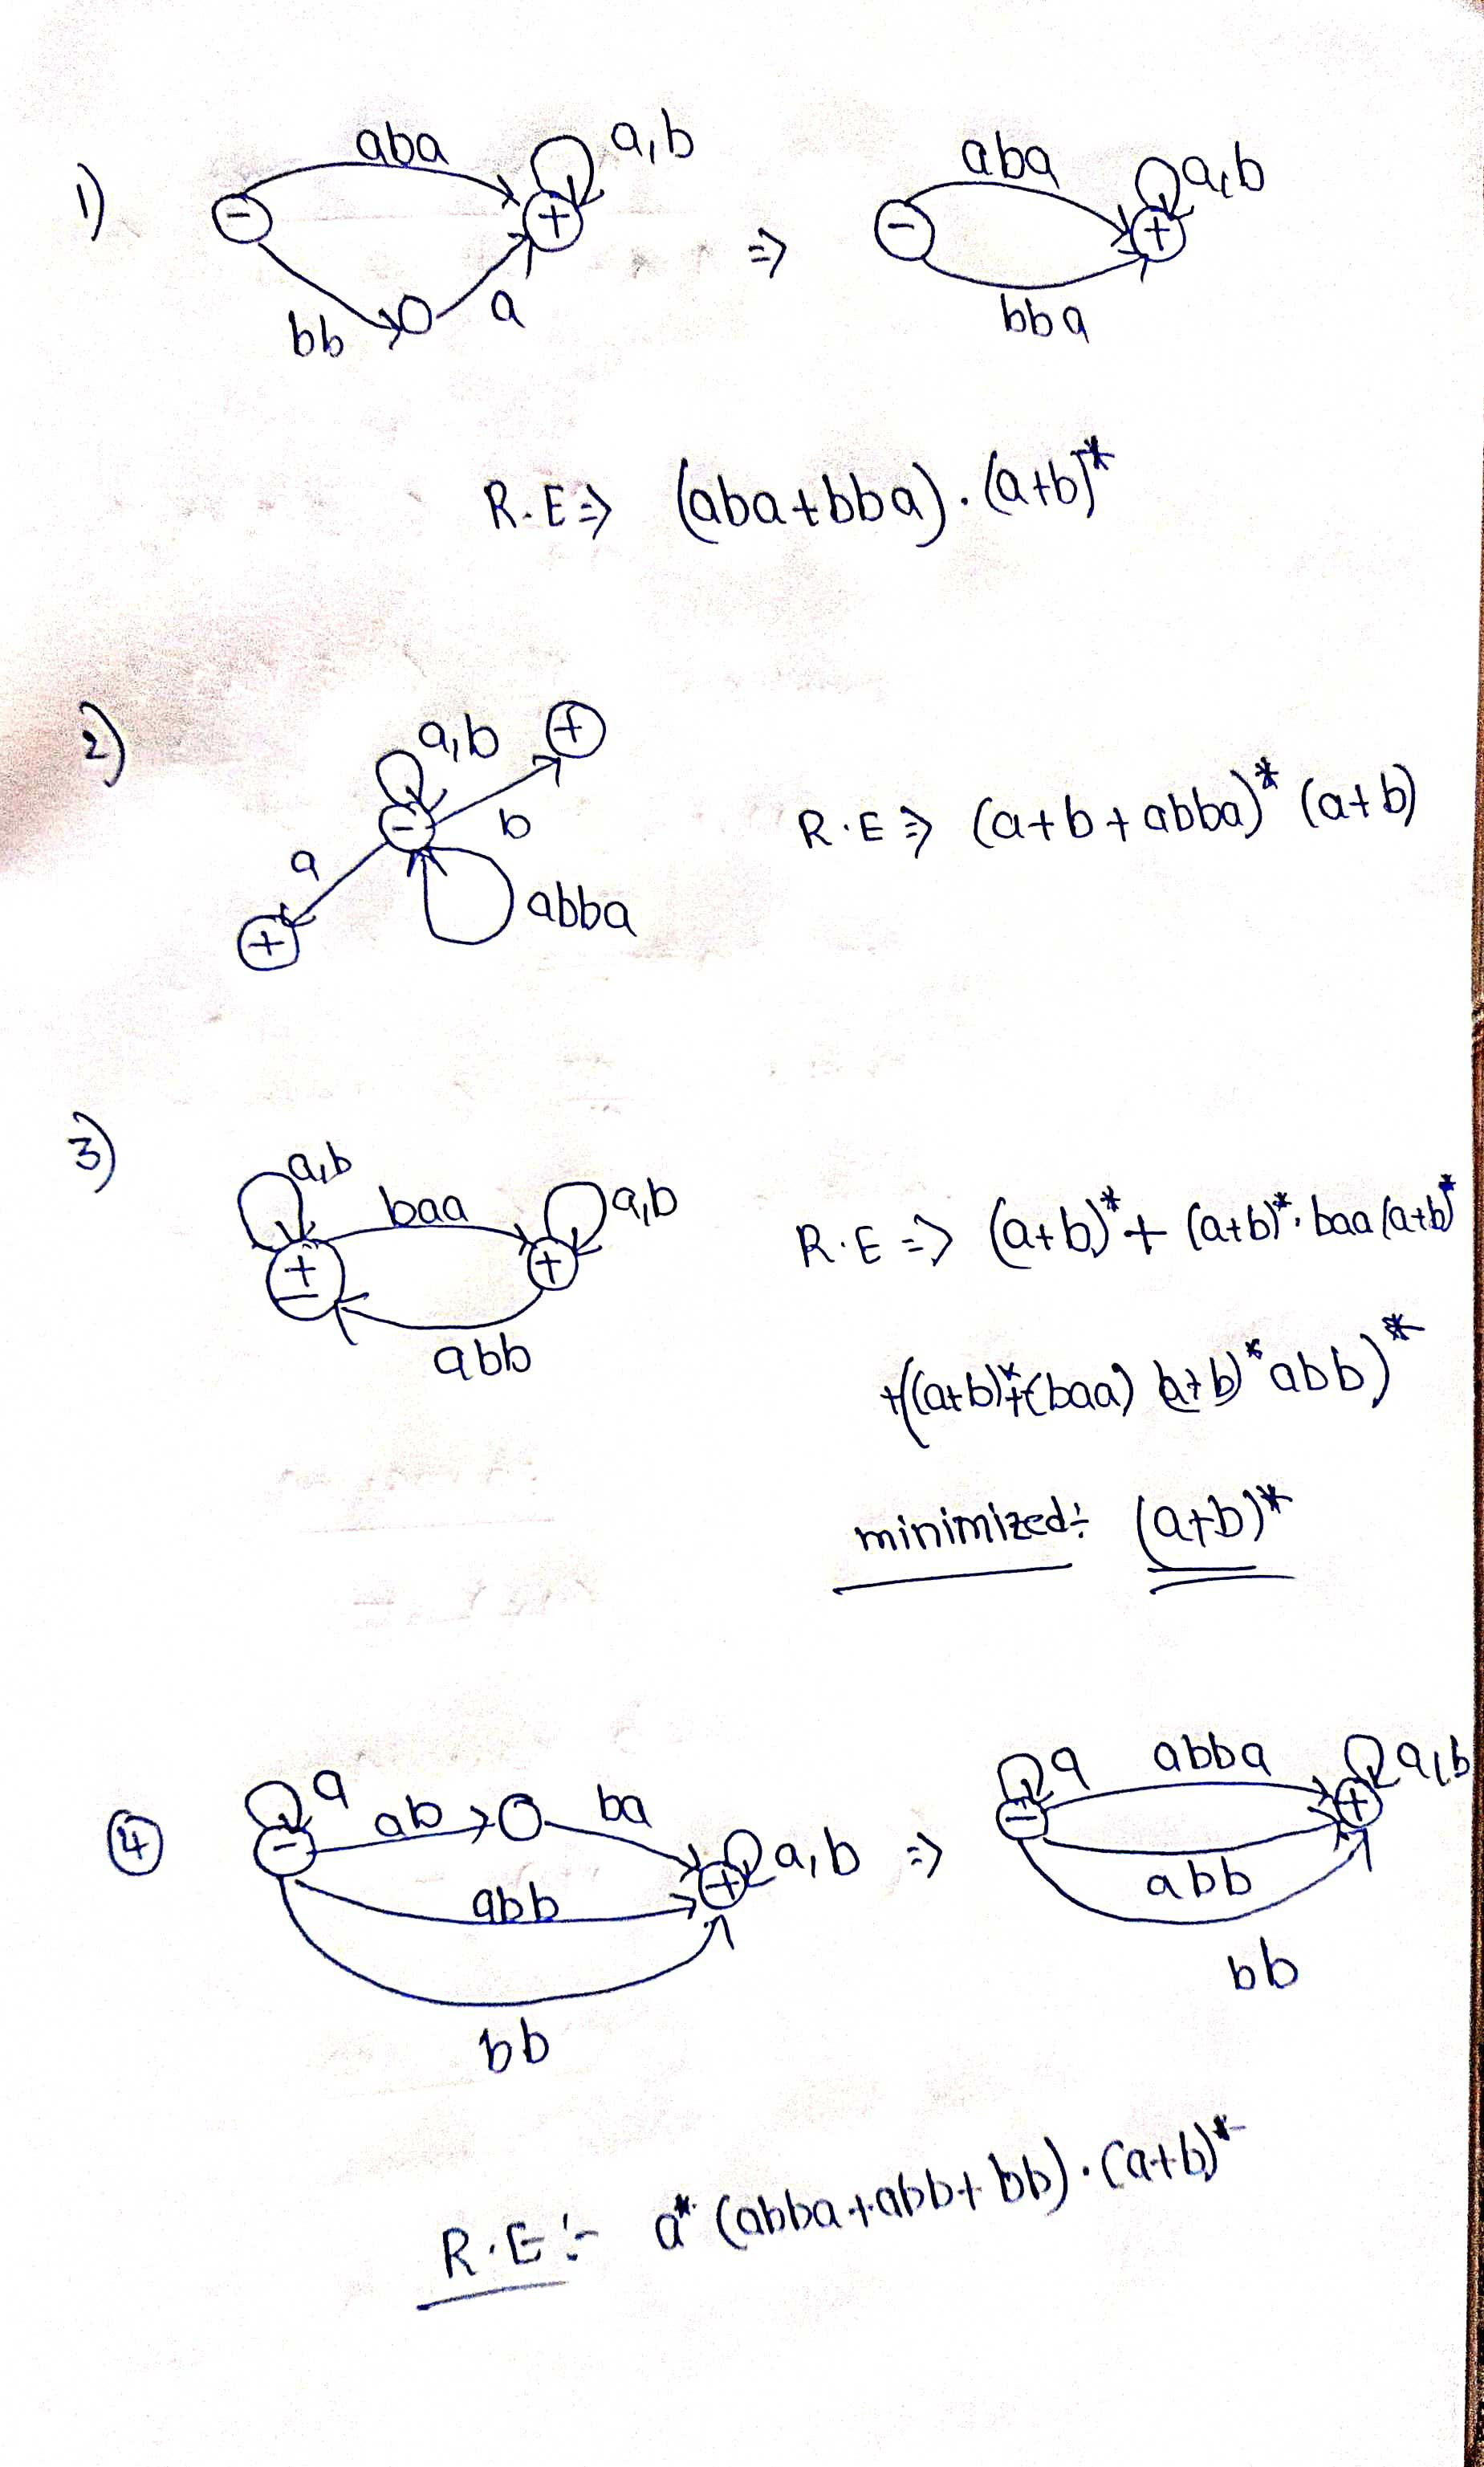 1)
aba
a,b
-
+
bb
a
=>
aba
a,b
-
+
bba
R.E => (aba+bba).(a+b)*
2)
a,b
+
-
b
a
+
abba
R.E => (a+b+abba)* (a+b)
3)
a,b
baa
a,b
+
-
+
abb
R.E => (a+b)* + (a+b)*. baa (a+b)*
+((a+b)*+(baa) (a+b)* abb)*
minimized:- (a+b)*
4
a
ab
ba
-
+
a,b
abb
bb
=>
a
abba
a,b
-
+
abb
bb
R.E :- a* (abba+abb+bb).(a+b)*